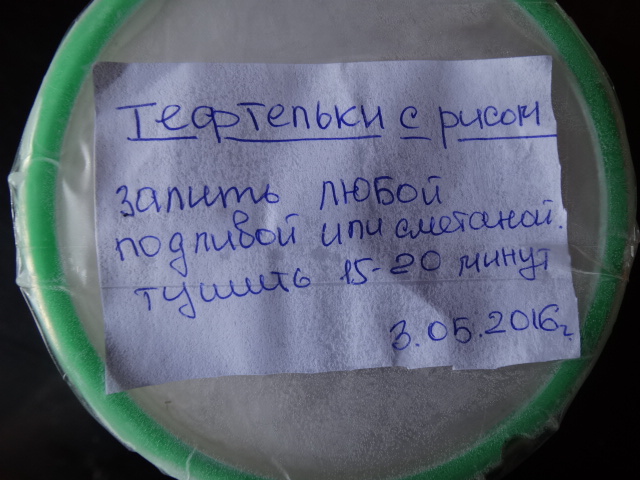 Тефтельки с рисом
залить любой
подливой или сметаной.
тушить 15-20 минут
3.05.2016г.